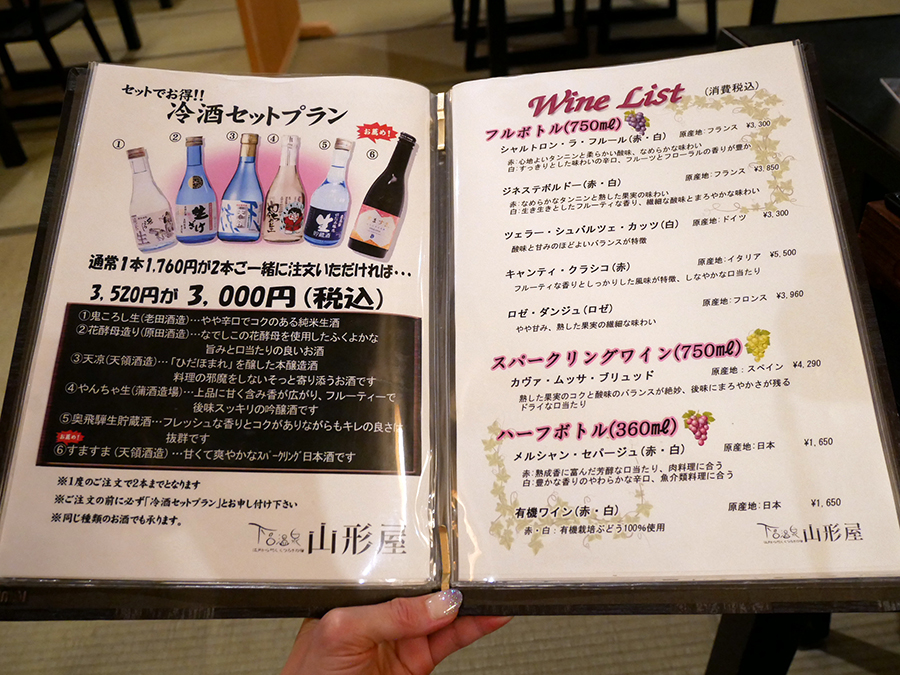 セットでお得!!
冷酒セットプラン
お薦め!
① ② ③ ④ ⑤ ⑥
生
貯蔵酒
通常1本1,760円が2本ご一緒に注文いただければ・・・
3,520円が 3,000円(税込)
①鬼ころし生(老田酒造)…やや辛口でコクのある純米生酒
②花酵母造り(原田酒造)…なでしこの花酵母を使用したふくよかな
旨みと口当たりの良いお酒
③天凉(天領酒造)…「ひだほまれ」を醸した本醸造酒
料理の邪魔をしないそっと寄り添うお酒です
④やんちゃ生(蒲酒造場)…上品に甘く含み香が広がり、フルーティーで
後味スッキリの吟醸酒です
⑤奥飛騨生貯蔵酒…フレッシュな香りとコクがありながらもキレの良さは
抜群です
お薦め!
⑥すますま(天領酒造)…甘くて爽やかなスパークリング日本酒です
※1度のご注文で2本までとなります
※ご注文の前に必ず「冷酒セットプラン」とお申し付け下さい
※同じ種類のお酒でも承ります。
下呂温泉 山形屋
Wine List (消費税込)
フルボトル(750ml)
シャルトロン・ラ・フルール(赤・白) 原産地:フランス ¥3,300
赤:心地よいタンニンと柔らかい酸味、なめらかな味わい
白:すっきりとした味わいの辛口、フルーツとフローラルの香りが豊か
ジネステボルドー(赤・白) 原産地:フランス ¥3,850
赤:なめらかなタンニンと熟した果実の味わい
白:生き生きとしたフルーティな香り、繊細な酸味とまろやかな味わい
ツェラー・シュバルツェ・カッツ(白) 原産地:ドイツ ¥3,300
酸味と甘みのほどよいバランスが特徴
キャンティ・クラシコ(赤) 原産地:イタリア ¥5,500
フルーティな香りとしっかりした風味が特徴、しなやかな口当たり
ロゼ・ダンジュ(ロゼ) 原産地:フロンス ¥3,960
やや甘み、熟した果実の繊細な味わい
スパークリングワイン(750ml)
カヴァ・ムッサ・ブリュッド 原産地:スペイン ¥4,290
熟した果実のコクと酸味のバランスが絶妙、後味にまろやかさが残る
ドライな口当たり
ハーフボトル(360ml)
メルシャン・セパージュ(赤・白) 原産地:日本 ¥1,650
赤:熟成香に富んだ芳醇な口当たり、肉料理に合う
白:豊かな香りのやわらかな辛口、魚介類料理に合う
有機ワイン(赤・白) 原産地:日本 ¥1,650
赤・白:有機栽培ぶどう100%使用
下呂温泉 山形屋